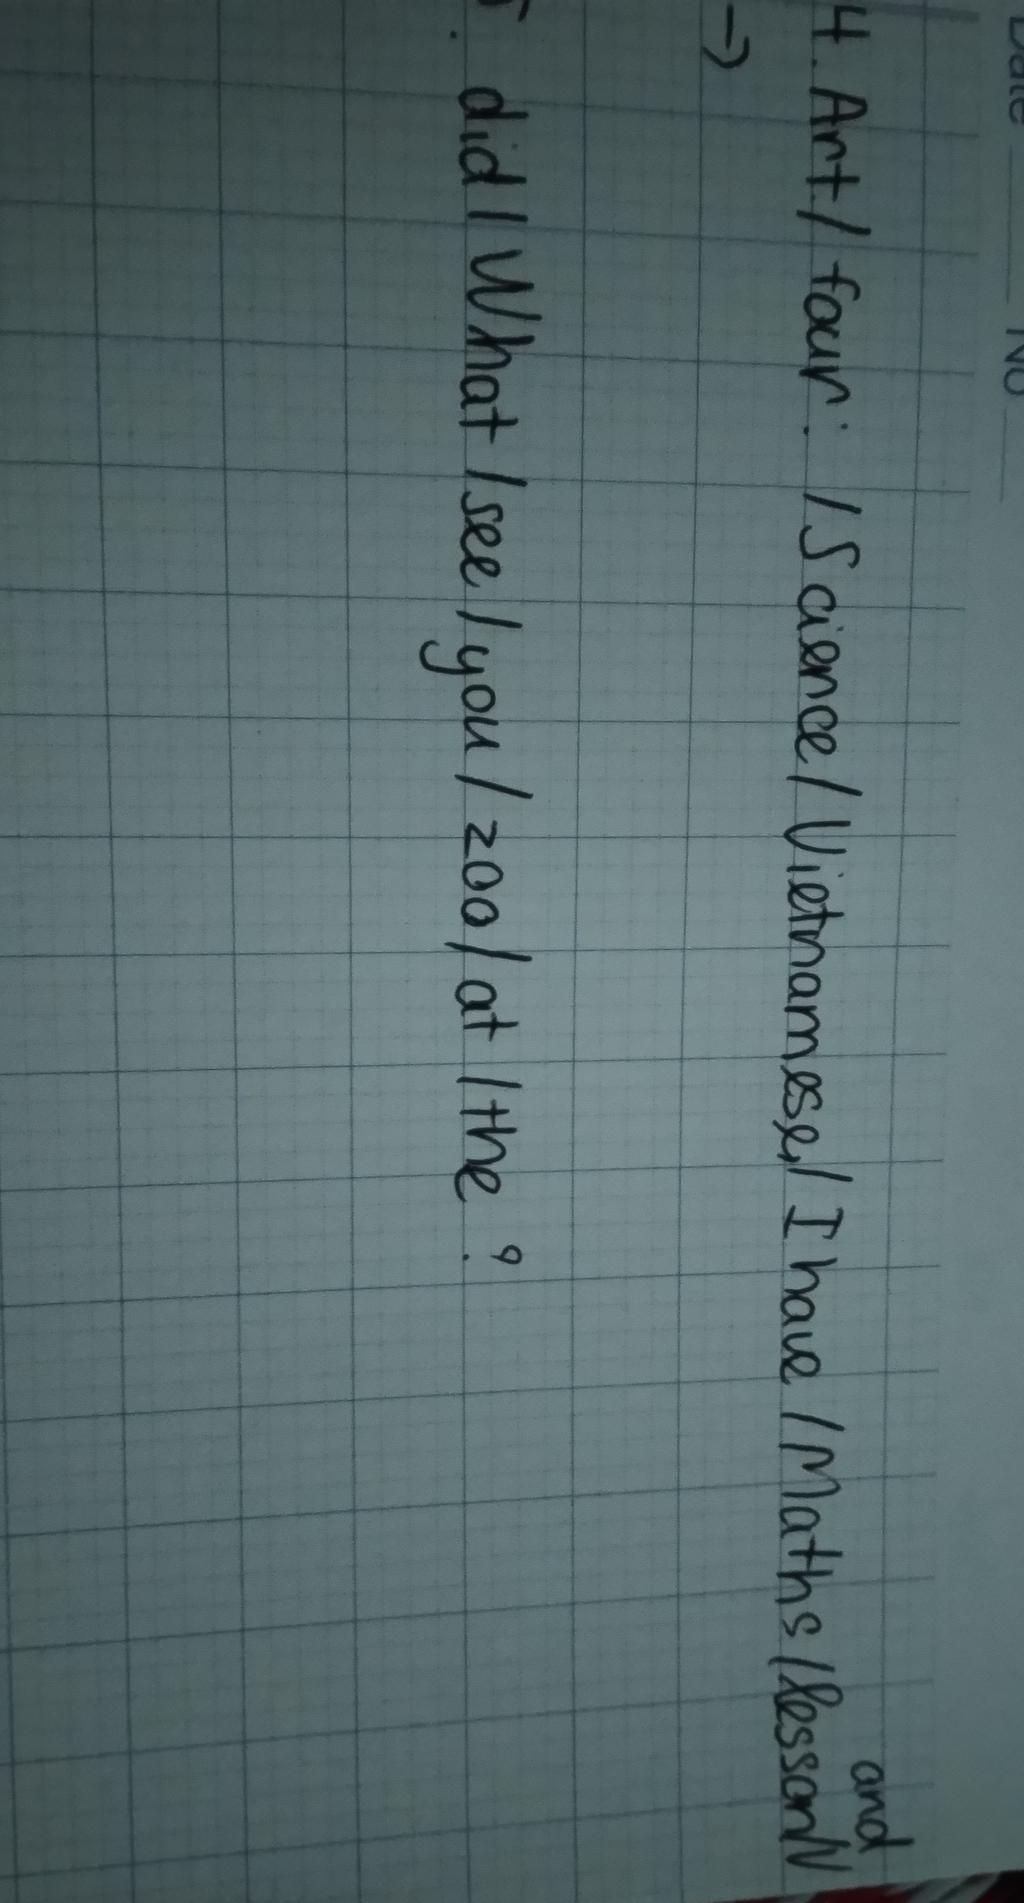 Date No
and
4. Art / four: / Science / Vietnamese, / I have / Maths / lesson /
→
5. did / What / see / you / zoo / at / the ?